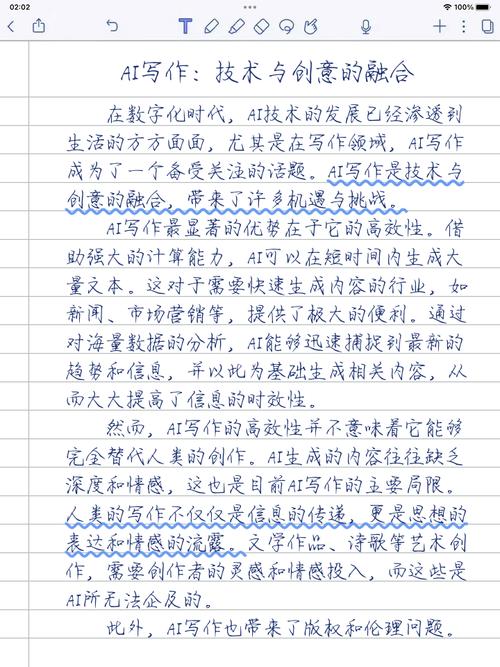 02:02
100%
AI写作：技术与创意的融合
在数字化时代，AI技术的发展已经渗透到
生活的方方面面，尤其是在写作领域，AI写作
成为了一个备受关注的话题。AI写作是技术与
创意的融合，带来了许多机遇与挑战。
AI写作最显著的优势在于它的高效性。借
助强大的计算能力，AI可以在短时间内生成大
量文本。这对于需要快速生成内容的行业，如
新闻、市场营销等，提供了极大的便利。通过
对海量数据的分析，AI能够迅速捕捉到最新的
趋势和信息，并以此为基础生成相关内容，从
而大大提高了信息的时效性。
然而，AI写作的高效性并不意味着它能够
完全替代人类的创作。AI生成的内容往往缺乏
深度和情感，这也是目前AI写作的主要局限。
人类的写作不仅仅是信息的传递，更是思想的
表达和情感的流露。文学作品、诗歌等艺术创
作，需要创作者的灵感和情感投入，而这些是
AI所无法企及的。
此外，AI写作也带来了版权和伦理问题。